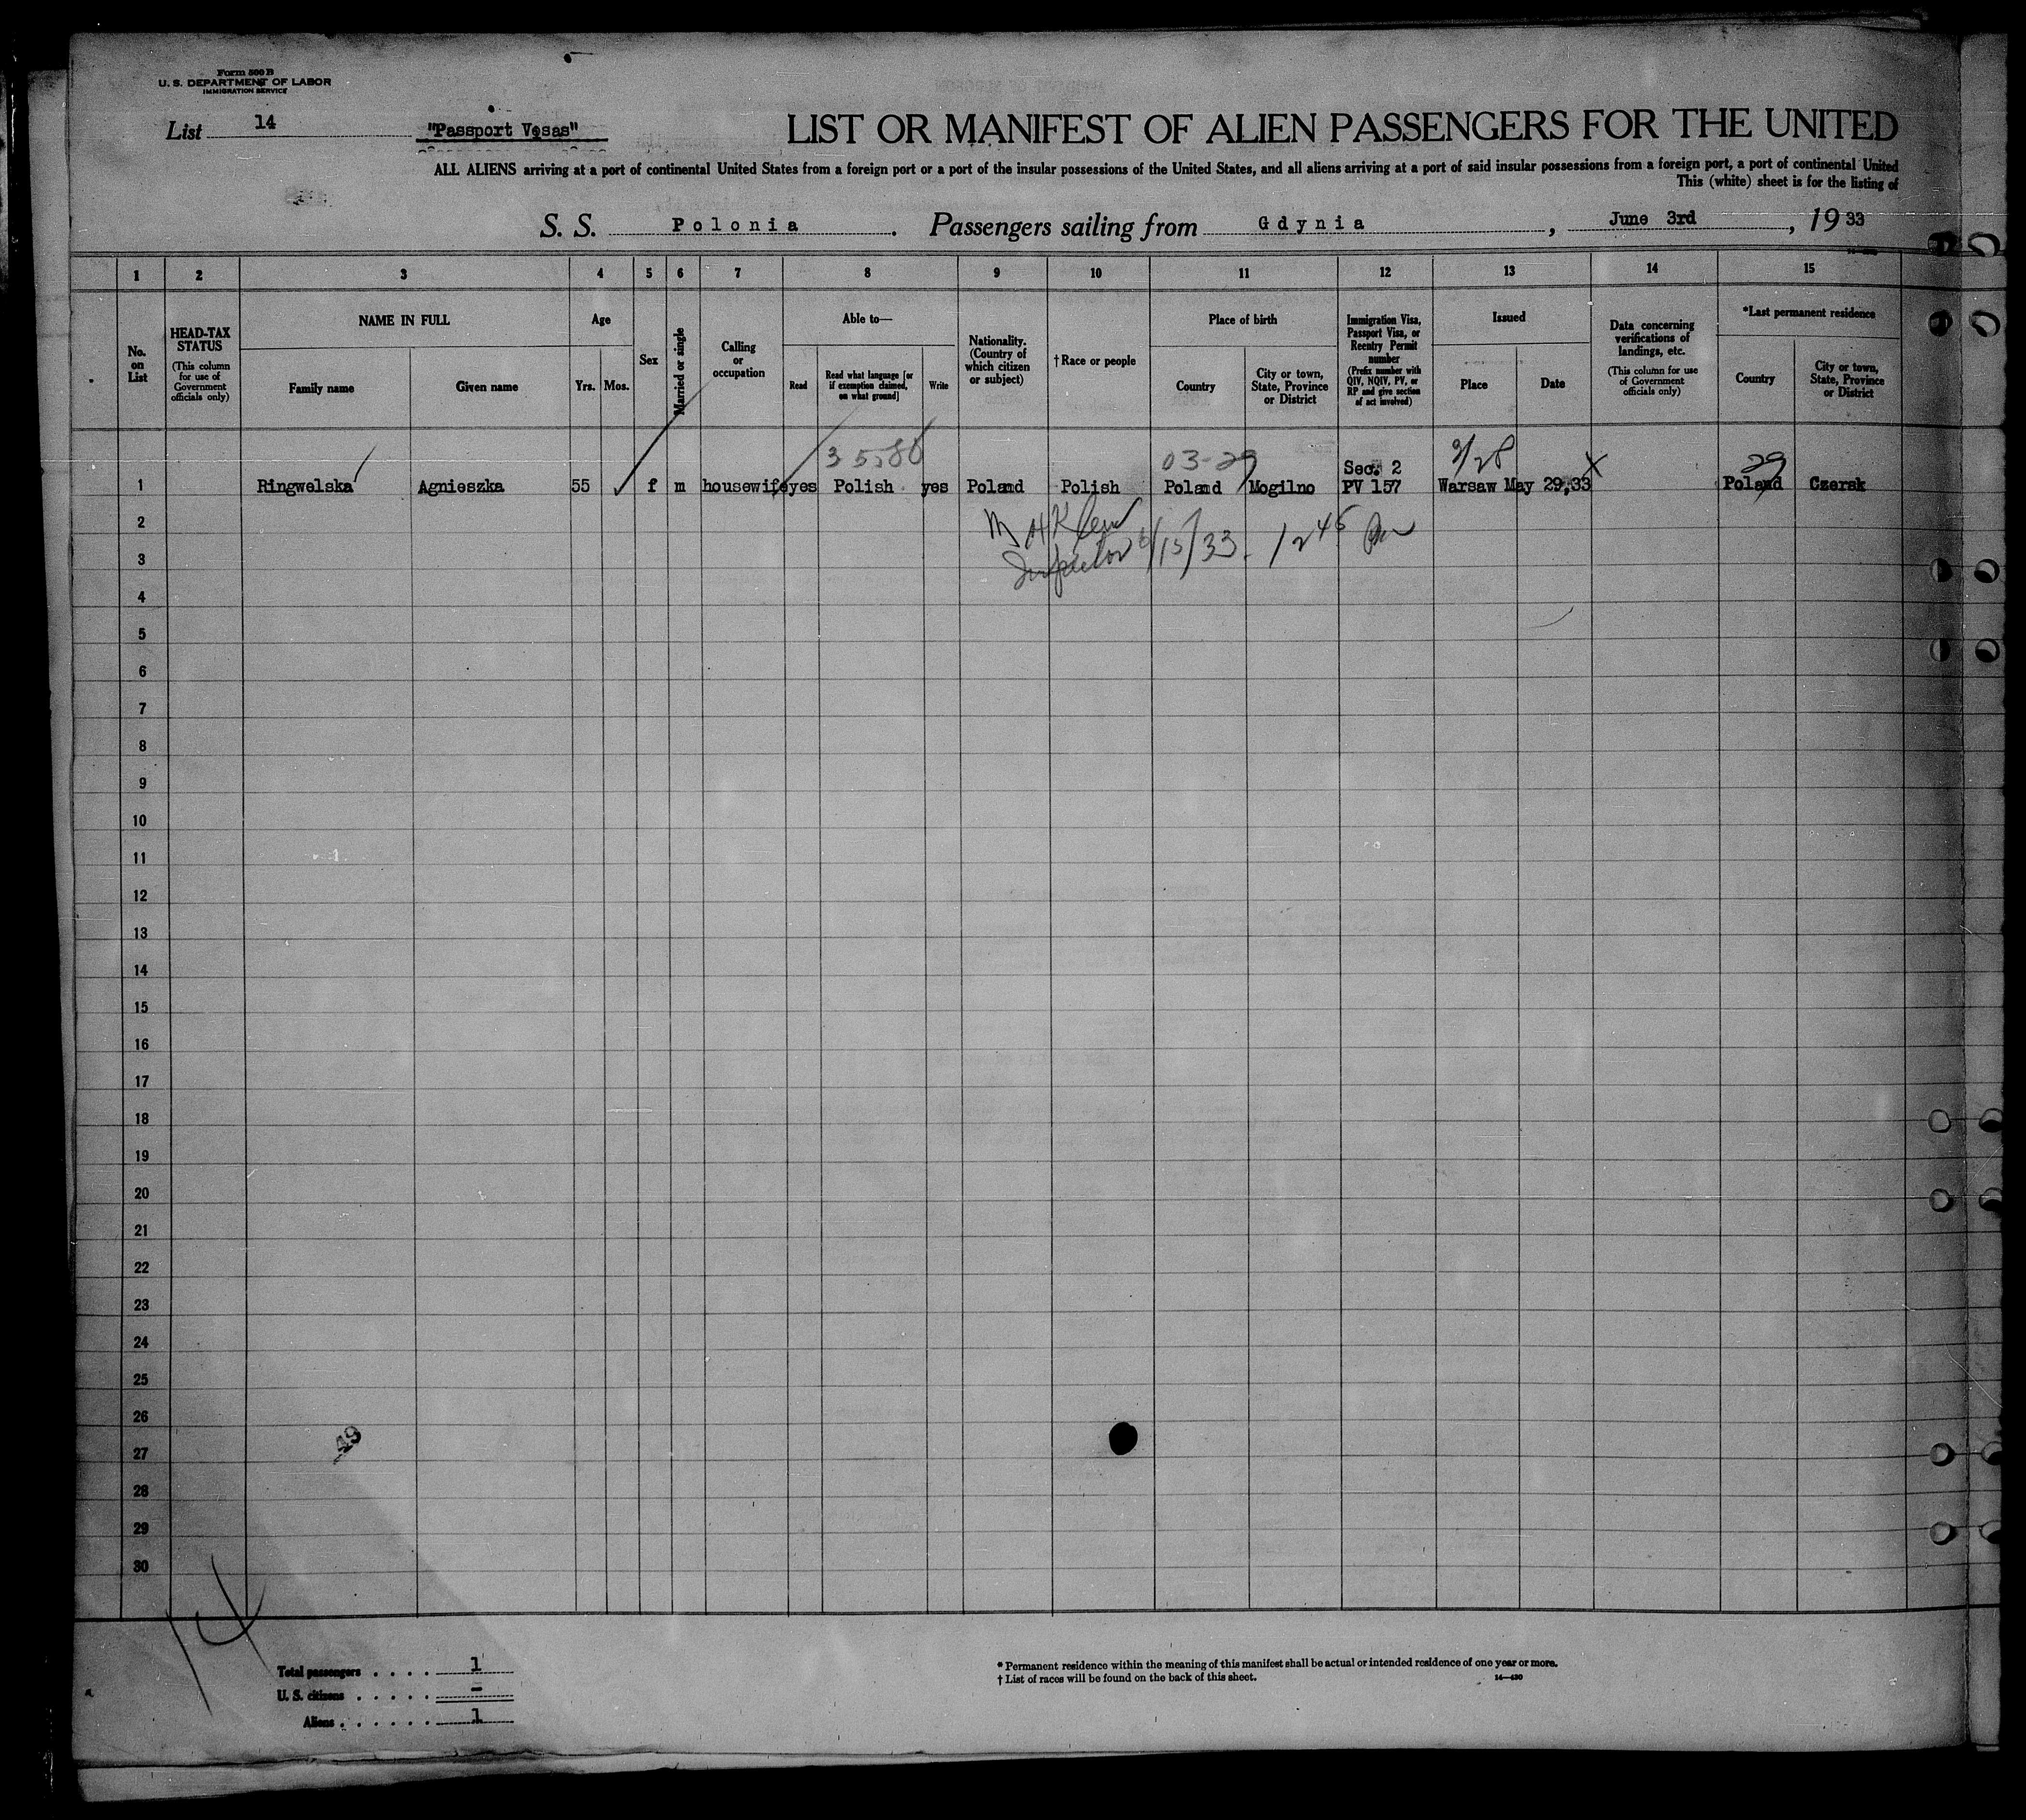 Form 500 B
U. S. DEPARTMENT OF LABOR
IMMIGRATION SERVICE
List 14 "Passport Vesas"
LIST OR MANIFEST OF ALIEN PASSENGERS FOR THE UNITED
ALL ALIENS arriving at a port of continental United States from a foreign port or a port of the insular possessions of the United States, and all aliens arriving at a port of said insular possessions from a foreign port, a port of continental United
This (white) sheet is for the listing of
S. S. Polonia. Passengers sailing from Gdynia, June 3rd, 19 33
1 2 3 4 5 6 7 8 9 10 11 12 13 14 15
No. on List
HEAD-TAX STATUS
(This column for use of Government officials only)
NAME IN FULL
Family name Given name
Age
Yrs. Mos.
Sex
Married or single
Calling or occupation
Able to—
Read
Read what language [or if exemption claimed, on what ground]
Write
Nationality. (Country of which citizen or subject)
†Race or people
Place of birth
Country
City or town, State, Province or District
Immigration Visa, Passport Visa, or Reentry Permit number
(Prefix number with QIV, NQIV, PV, or RP and give section of act involved)
Issued
Place Date
Data concerning verifications of landings, etc.
(This column for use of Government officials only)
*Last permanent residence
Country
City or town, State, Province or District
03-29 29
Sec. 2
1 Ringwelska Agnieszka 55 f m housewife yes Polish yes Poland Polish Poland Mogilno PV 157 Warsaw May 29,33 X Poland Czersk
2
Inspector 6/15/33. 12 45 Pm
3
4
5
6
7
8
9
10
11
12
13
14
15
16
17
18
19
20
21
22
23
24
25
26
27
49
28
29
30
14
Total passengers . . . . 1
U. S. citizens . . . . . -
Aliens . . . . . . 1
* Permanent residence within the meaning of this manifest shall be actual or intended residence of one year or more.
† List of races will be found on the back of this sheet. 14—430